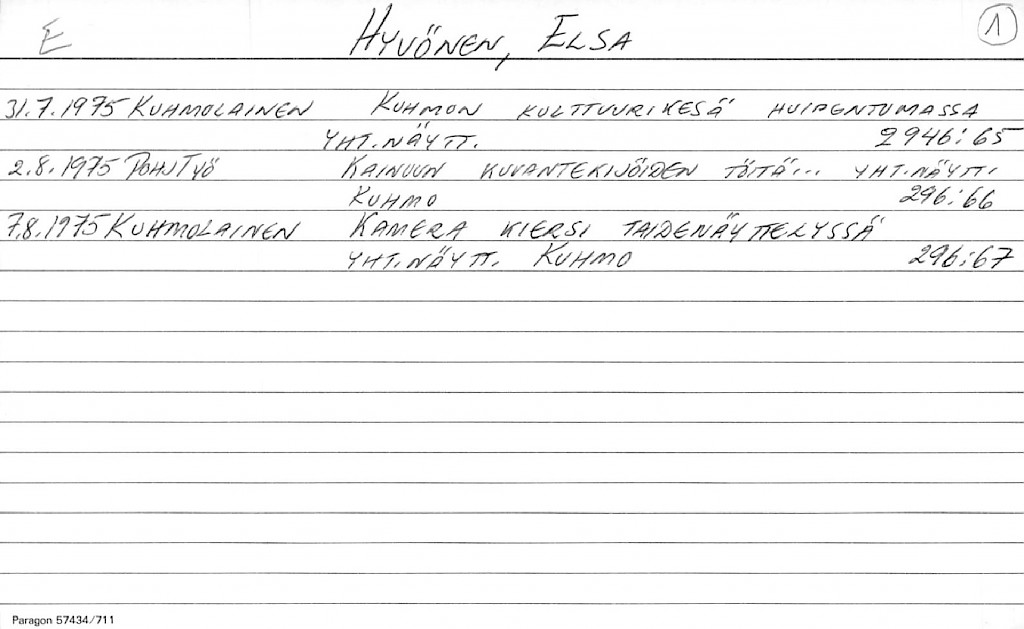 E HYVÖNEN, ELSA 1
31.7.1975 KUHMOLAINEN KUHMON KULTTUURIKESÄ HUIPENTUMASSA
YHT.NÄYTT. 2946:65
2.8.1975 POHJTYÖ KAINUUN KUVANTEKIJÖIDEN TÖITÄ... YHT.NÄYTT.
KUHMO 296:66
7.8.1975 KUHMOLAINEN KAMERA KIERSI TAIDENÄYTTELYSSÄ
YHT.NÄYTT. KUHMO 296:67
Paragon 57434/711